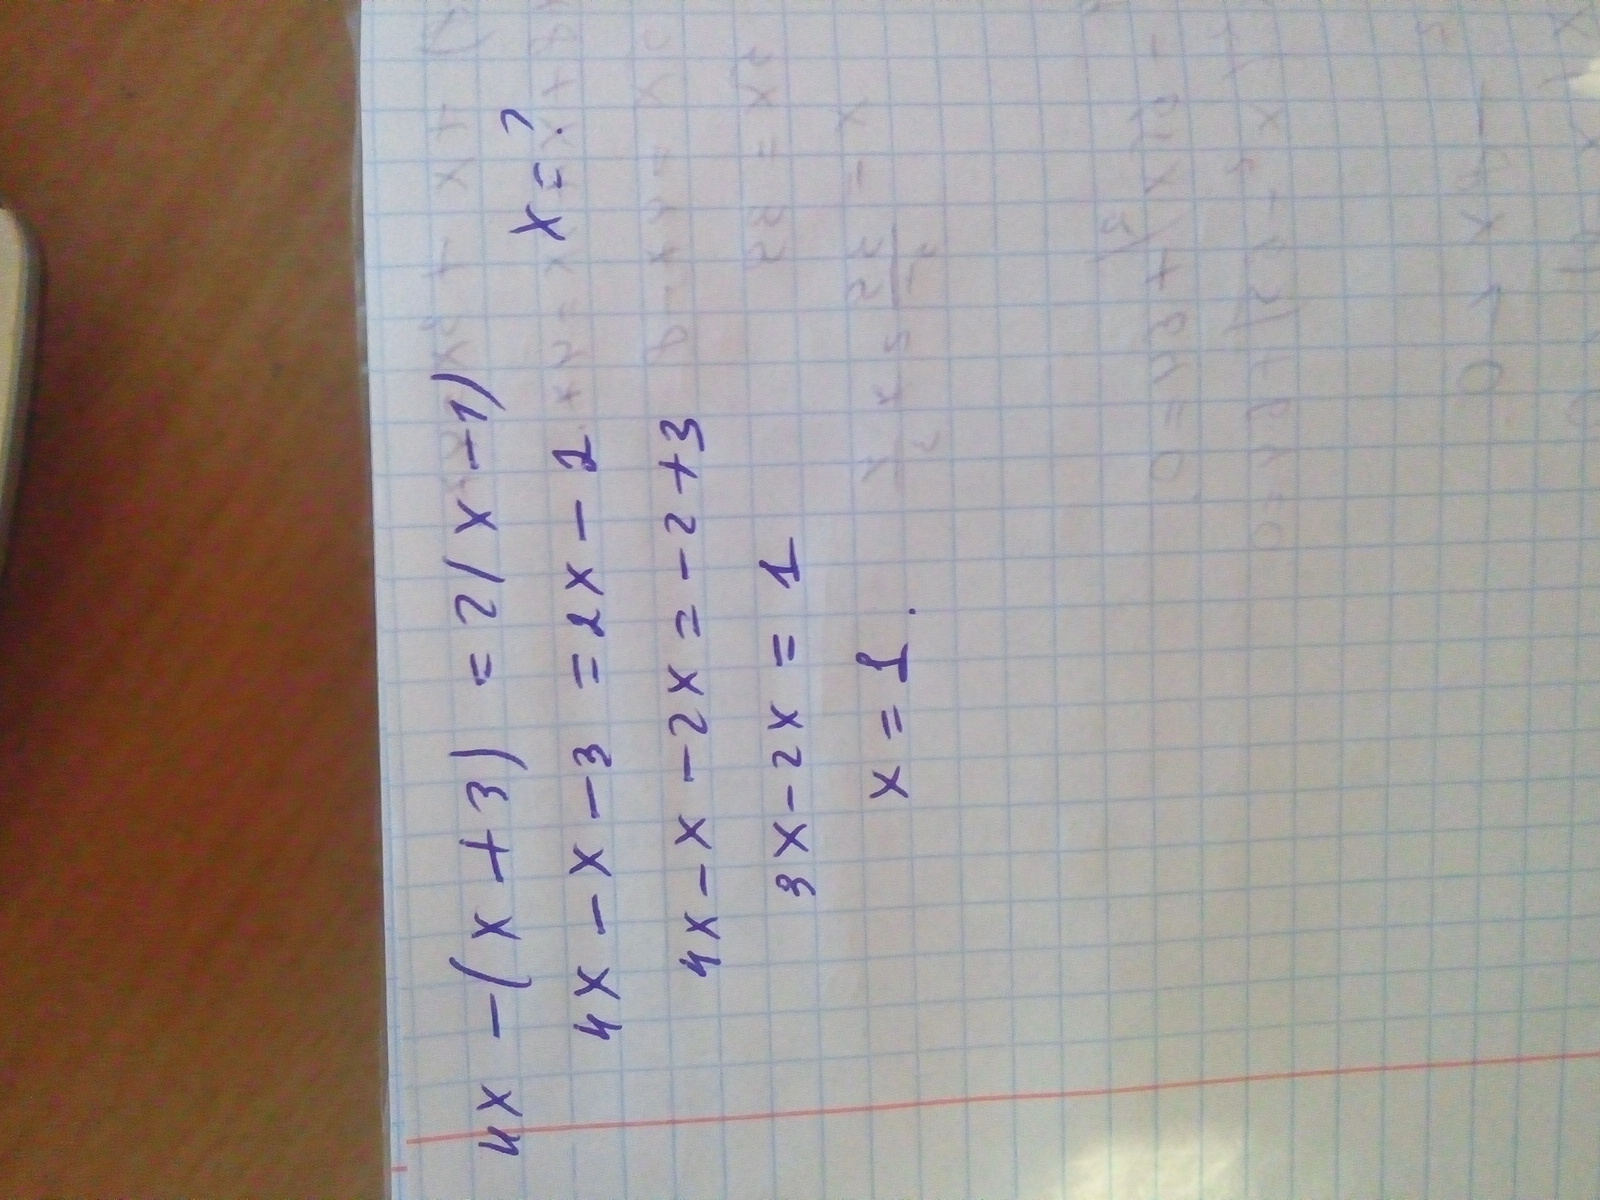 4x - (x + 3) = 2(x - 1)
x = ?
4x - x - 3 = 2x - 2
4x - x - 2x = -2 + 3
3x - 2x = 1
x = 1.